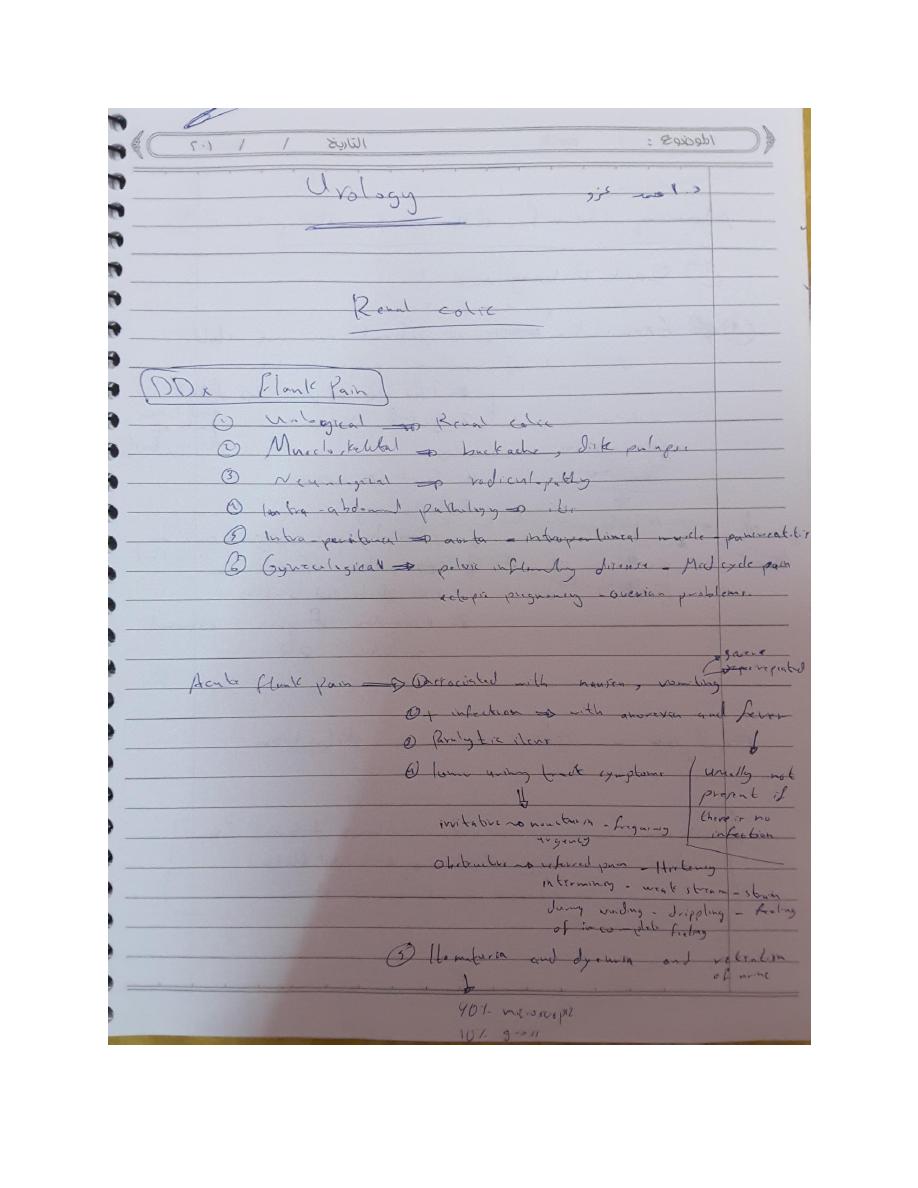 الموضوع : التاريخ / / ٢٠١
Urology د. احمد عزو
Renal colic
DDx Flank Pain
① Urological ⇒ Renal colic
② Musclo.skeletal ⇒ backache, disk prolapse
③ Neurological ⇒ radiculopathy
④ Intra-abdomal pathology ⇒ itis
⑤ Intra-peritoneal ⇒ aorta - muscle - pancreatitis
⑥ Gynecological ⇒ pelvic disease - Mid cycle pain
ectopic pregnancy - ovarian problems.
severe
repeated
Acute flank pain ⇒ ① associated with nausea, vomiting
② + infection ⇒ with anorexia and fever
③ Paralytic ileus
④ lower urinary tract symptoms
usually not
present if
there is no
infection
irritative → - frequency
urgency
Obstructive → referred pain - Hesitancy
- weak stream - strain
during voiding - drippling - feeling
of incomplete
⑤ Hematuria and dysuria and retention
of urine
microscopic
10% gross